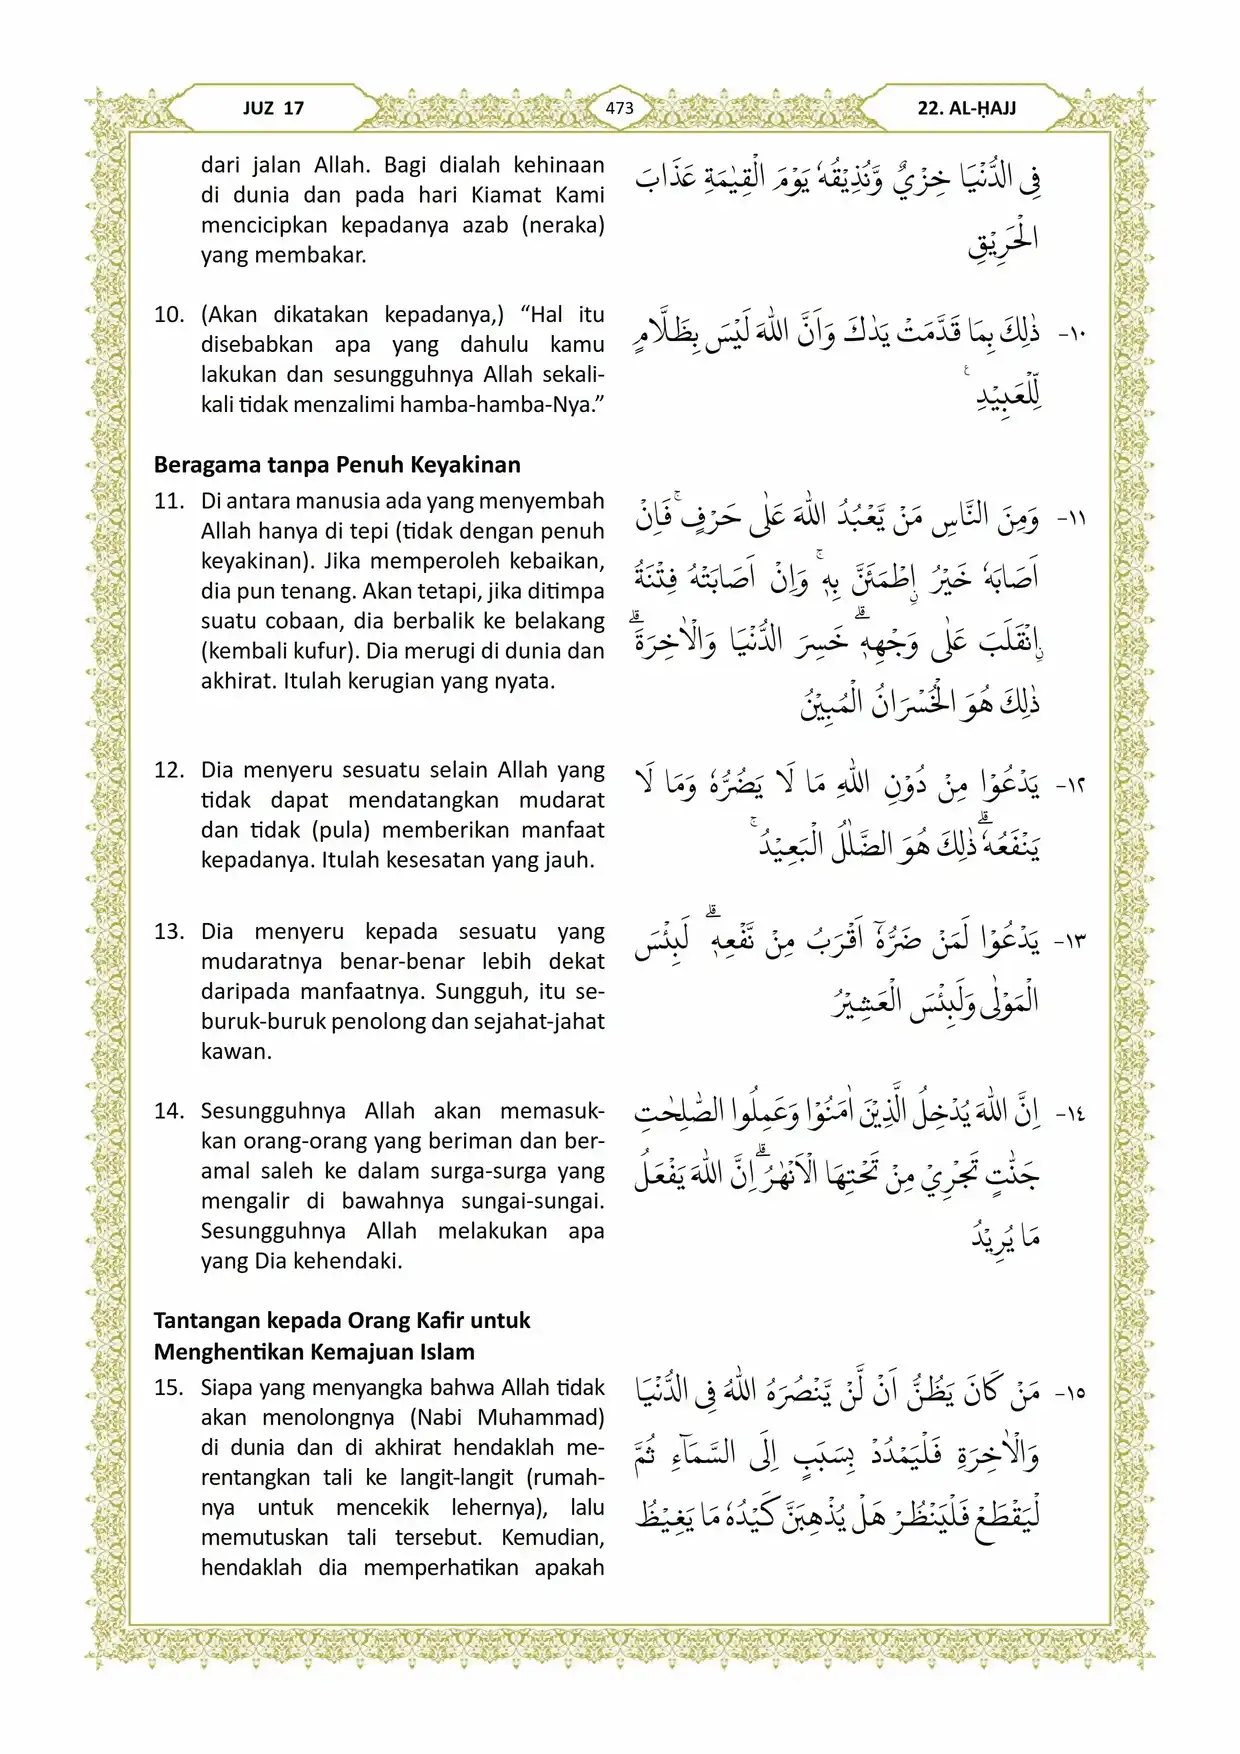 JUZ 17
473
22. AL-ḤAJJ
dari jalan Allah. Bagi dialah kehinaan
di dunia dan pada hari Kiamat Kami
mencicipkan kepadanya azab (neraka)
yang membakar.
فِى الدُّنْيَا خِزْيٌ وَّنُذِيْقُهٗ يَوْمَ الْقِيٰمَةِ عَذَابَ
الْحَرِيْقِ
10. (Akan dikatakan kepadanya,) “Hal itu
disebabkan apa yang dahulu kamu
lakukan dan sesungguhnya Allah sekali-
kali tidak menzalimi hamba-hamba-Nya.”
١٠- ذٰلِكَ بِمَا قَدَّمَتْ يَدٰكَ وَاَنَّ اللّٰهَ لَيْسَ بِظَلَّامٍ
لِّلْعَبِيْدِ ࣖ
Beragama tanpa Penuh Keyakinan
11. Di antara manusia ada yang menyembah
Allah hanya di tepi (tidak dengan penuh
keyakinan). Jika memperoleh kebaikan,
dia pun tenang. Akan tetapi, jika ditimpa
suatu cobaan, dia berbalik ke belakang
(kembali kufur). Dia merugi di dunia dan
akhirat. Itulah kerugian yang nyata.
١١- وَمِنَ النَّاسِ مَنْ يَّعْبُدُ اللّٰهَ عَلٰى حَرْفٍۚ فَاِنْ
اَصَابَهٗ خَيْرُ ِۨاطْمَـَٔنَّ بِهٖۚ وَاِنْ اَصَابَتْهُ فِتْنَةُ
ِۨانْقَلَبَ عَلٰى وَجْهِهٖۗ خَسِرَ الدُّنْيَا وَالْاٰخِرَةَۗ
ذٰلِكَ هُوَ الْخُسْرَانُ الْمُبِيْنُ
12. Dia menyeru sesuatu selain Allah yang
tidak dapat mendatangkan mudarat
dan tidak (pula) memberikan manfaat
kepadanya. Itulah kesesatan yang jauh.
١٢- يَدْعُوْا مِنْ دُوْنِ اللّٰهِ مَا لَا يَضُرُّهٗ وَمَا لَا
يَنْفَعُهٗۗ ذٰلِكَ هُوَ الضَّلٰلُ الْبَعِيْدُۚ
13. Dia menyeru kepada sesuatu yang
mudaratnya benar-benar lebih dekat
daripada manfaatnya. Sungguh, itu se-
buruk-buruk penolong dan sejahat-jahat
kawan.
١٣- يَدْعُوْا لَمَنْ ضَرُّهٗٓ اَقْرَبُ مِنْ نَّفْعِهٖۗ لَبِئْسَ
الْمَوْلٰى وَلَبِئْسَ الْعَشِيْرُ
14. Sesungguhnya Allah akan memasuk-
kan orang-orang yang beriman dan ber-
amal saleh ke dalam surga-surga yang
mengalir di bawahnya sungai-sungai.
Sesungguhnya Allah melakukan apa
yang Dia kehendaki.
١٤- اِنَّ اللّٰهَ يُدْخِلُ الَّذِيْنَ اٰمَنُوْا وَعَمِلُوا الصّٰلِحٰتِ
جَنّٰتٍ تَجْرِيْ مِنْ تَحْتِهَا الْاَنْهٰرُۗ اِنَّ اللّٰهَ يَفْعَلُ
مَا يُرِيْدُ
Tantangan kepada Orang Kafir untuk
Menghentikan Kemajuan Islam
15. Siapa yang menyangka bahwa Allah tidak
akan menolongnya (Nabi Muhammad)
di dunia dan di akhirat hendaklah me-
rentangkan tali ke langit-langit (rumah-
nya untuk mencekik lehernya), lalu
memutuskan tali tersebut. Kemudian,
hendaklah dia memperhatikan apakah
١٥- مَنْ كَانَ يَظُنُّ اَنْ لَّنْ يَّنْصُرَهُ اللّٰهُ فِى الدُّنْيَا
وَالْاٰخِرَةِ فَلْيَمْدُدْ بِسَبَبٍ اِلَى السَّمَاۤءِ ثُمَّ
لْيَقْطَعْ فَلْيَنْظُرْ هَلْ يُذْهِبَنَّ كَيْدُهٗ مَا يَغِيْظُ